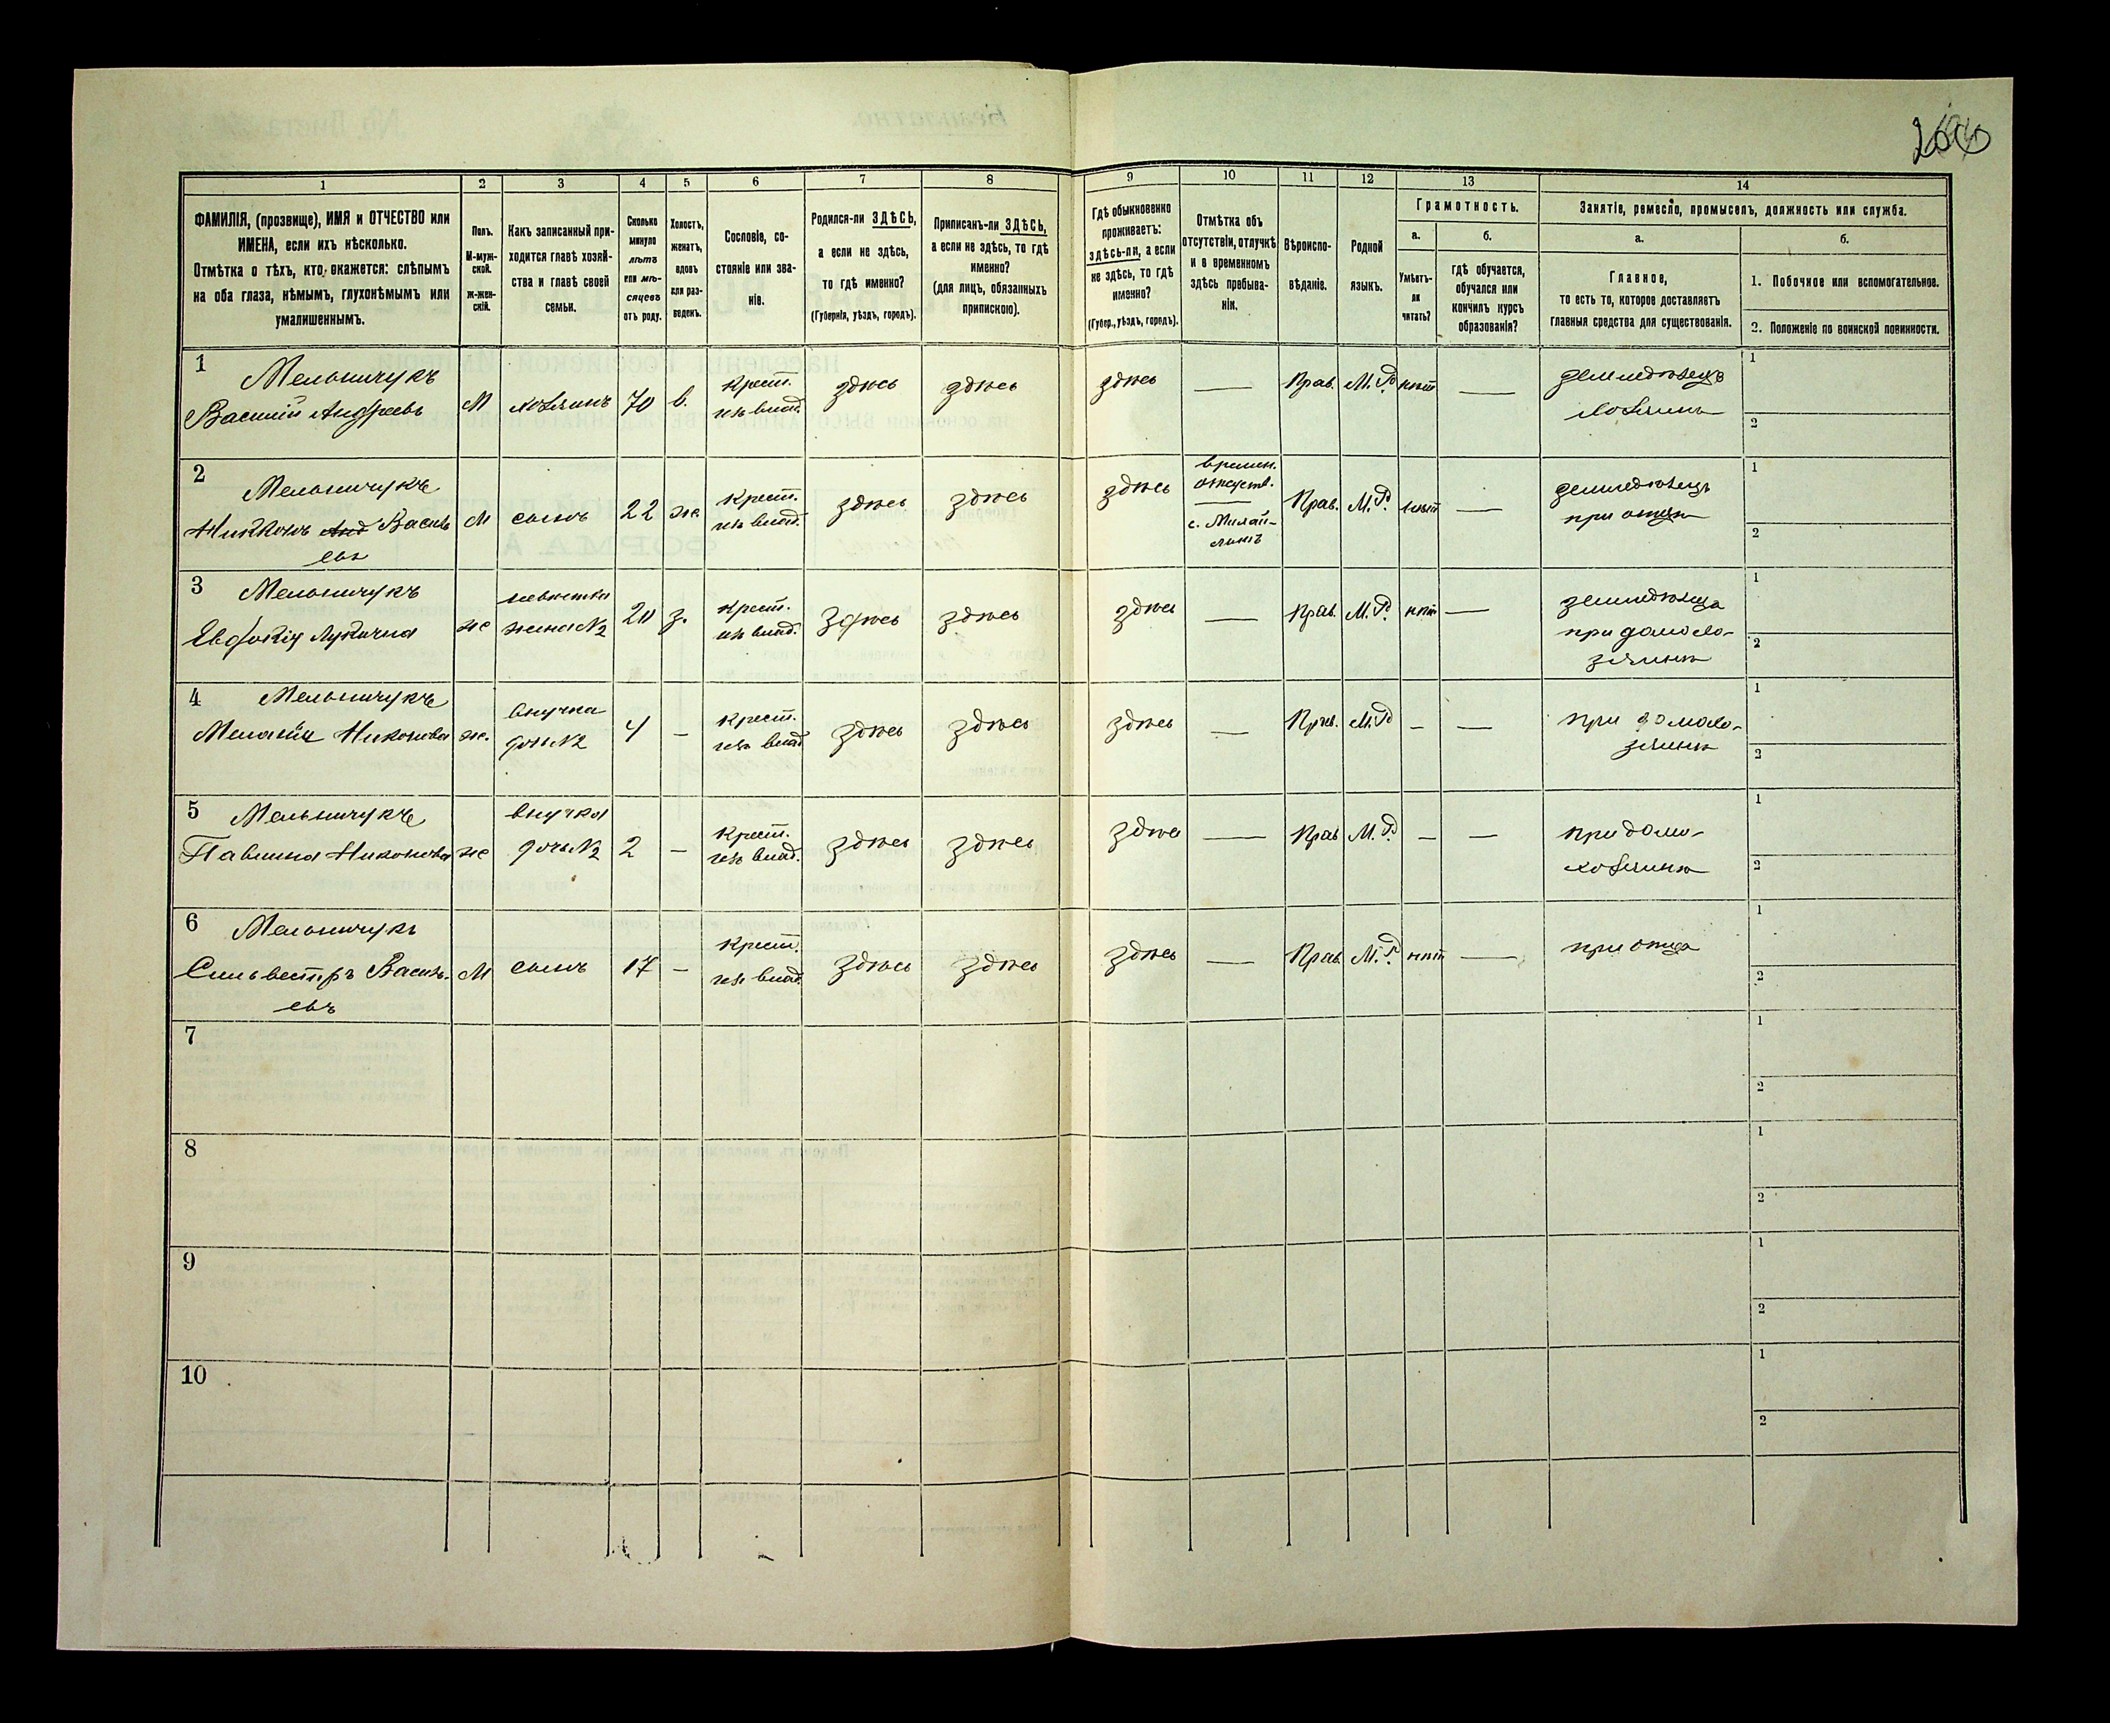 1 2 3 4 5 6 7 8 9 10 11 12 13 14
ФАМИЛІЯ, (прозвище), ИМЯ и ОТЧЕСТВО или
ИМЕНА, если ихъ нѣсколько.
Отмѣтка о тѣхъ, кто окажется: слѣпымъ
на оба глаза, нѣмымъ, глухонѣмымъ или
умалишеннымъ.
Полъ.
М-муж-
ской.
ж-жен-
скій.
Какъ записанный при-
ходится главѣ хозяй-
ства и главѣ своей
семьи.
Сколько
минуло
лѣтъ
или мѣ-
сяцевъ
отъ роду.
Холостъ,
женатъ,
вдовъ
или раз-
веденъ.
Сословіе, со-
стояніе или зва-
ніе.
Родился-ли ЗДѢСЬ,
а если не здѣсь,
то гдѣ именно?
(Губернія, уѣздъ, городъ).
Приписанъ-ли ЗДѢСЬ,
а если не здѣсь, то гдѣ
именно?
(для лицъ, обязанныхъ
припискою).
Гдѣ обыкновенно
проживаетъ:
здѣсь-ли, а если
не здѣсь, то гдѣ
именно?
(Губер., уѣздъ, городъ).
Отмѣтка объ
отсутствіи, отлучкѣ
и о временномъ
здѣсь пребыва-
ніи.
Вѣроиспо-
вѣданіе.
Родной
языкъ.
Грамотность.
а.
Умѣетъ-
ли
читать?
б.
гдѣ обучается,
обучался или
кончилъ курсъ
образованія?
Занятіе, ремесло, промыселъ, должность или служба.
а.
Главное,
то есть то, которое доставляетъ
главныя средства для существованія.
б.
1. Побочное или вспомогательное.
2. Положеніе по воинской повинности.
1
Мельничукъ
Василій Андреевъ
М
хозяинъ
70
в.
Крест.
изъ влад.
здѣсь
здѣсь
здѣсь
—
Прав.
М.Р.
нѣт
—
земледѣлецъ
хозяинъ
1
2
2
Мельничукъ
Никонъ Васильъ
евъ
М
сынъ
22
ж.
Крест.
изъ влад.
здѣсь
здѣсь
здѣсь
времен.
отсутств.
Прав.
М.Р.
нѣт
—
земледѣлецъ
при отцѣ
1
2
3
Мельничукъ
Евдокія
ж
невѣстка
жена №2
20
з.
Крест.
изъ влад.
здѣсь
здѣсь
здѣсь
—
Прав.
М.Р.
нѣт
—
земледѣлца
при домохо-
зяинѣ
1
2
4
Мельничукъ
Меланія Никонова
ж.
внучка
дочь №2
4
-
Крест.
изъ влад
здѣсь
здѣсь
здѣсь
—
Прав.
М.Р
-
—
при домохо-
зяинѣ
1
2
5
Мельничукъ
Павлина Никонова
ж
внучка
дочь №2
2
-
Крест.
изъ влад.
здѣсь
здѣсь
здѣсь
—
Прав
М.Р.
-
—
при домо-
хозяинѣ
1
2
6
Мельничукъ
Сильвестръ Василь-
евъ
М
сынъ
17
-
Крест.
изъ влад.
здѣсь
здѣсь
здѣсь
—
Прав
М.Р.
нѣт
—
при отца
1
2
7
1
2
8
1
2
9
1
2
10
1
2